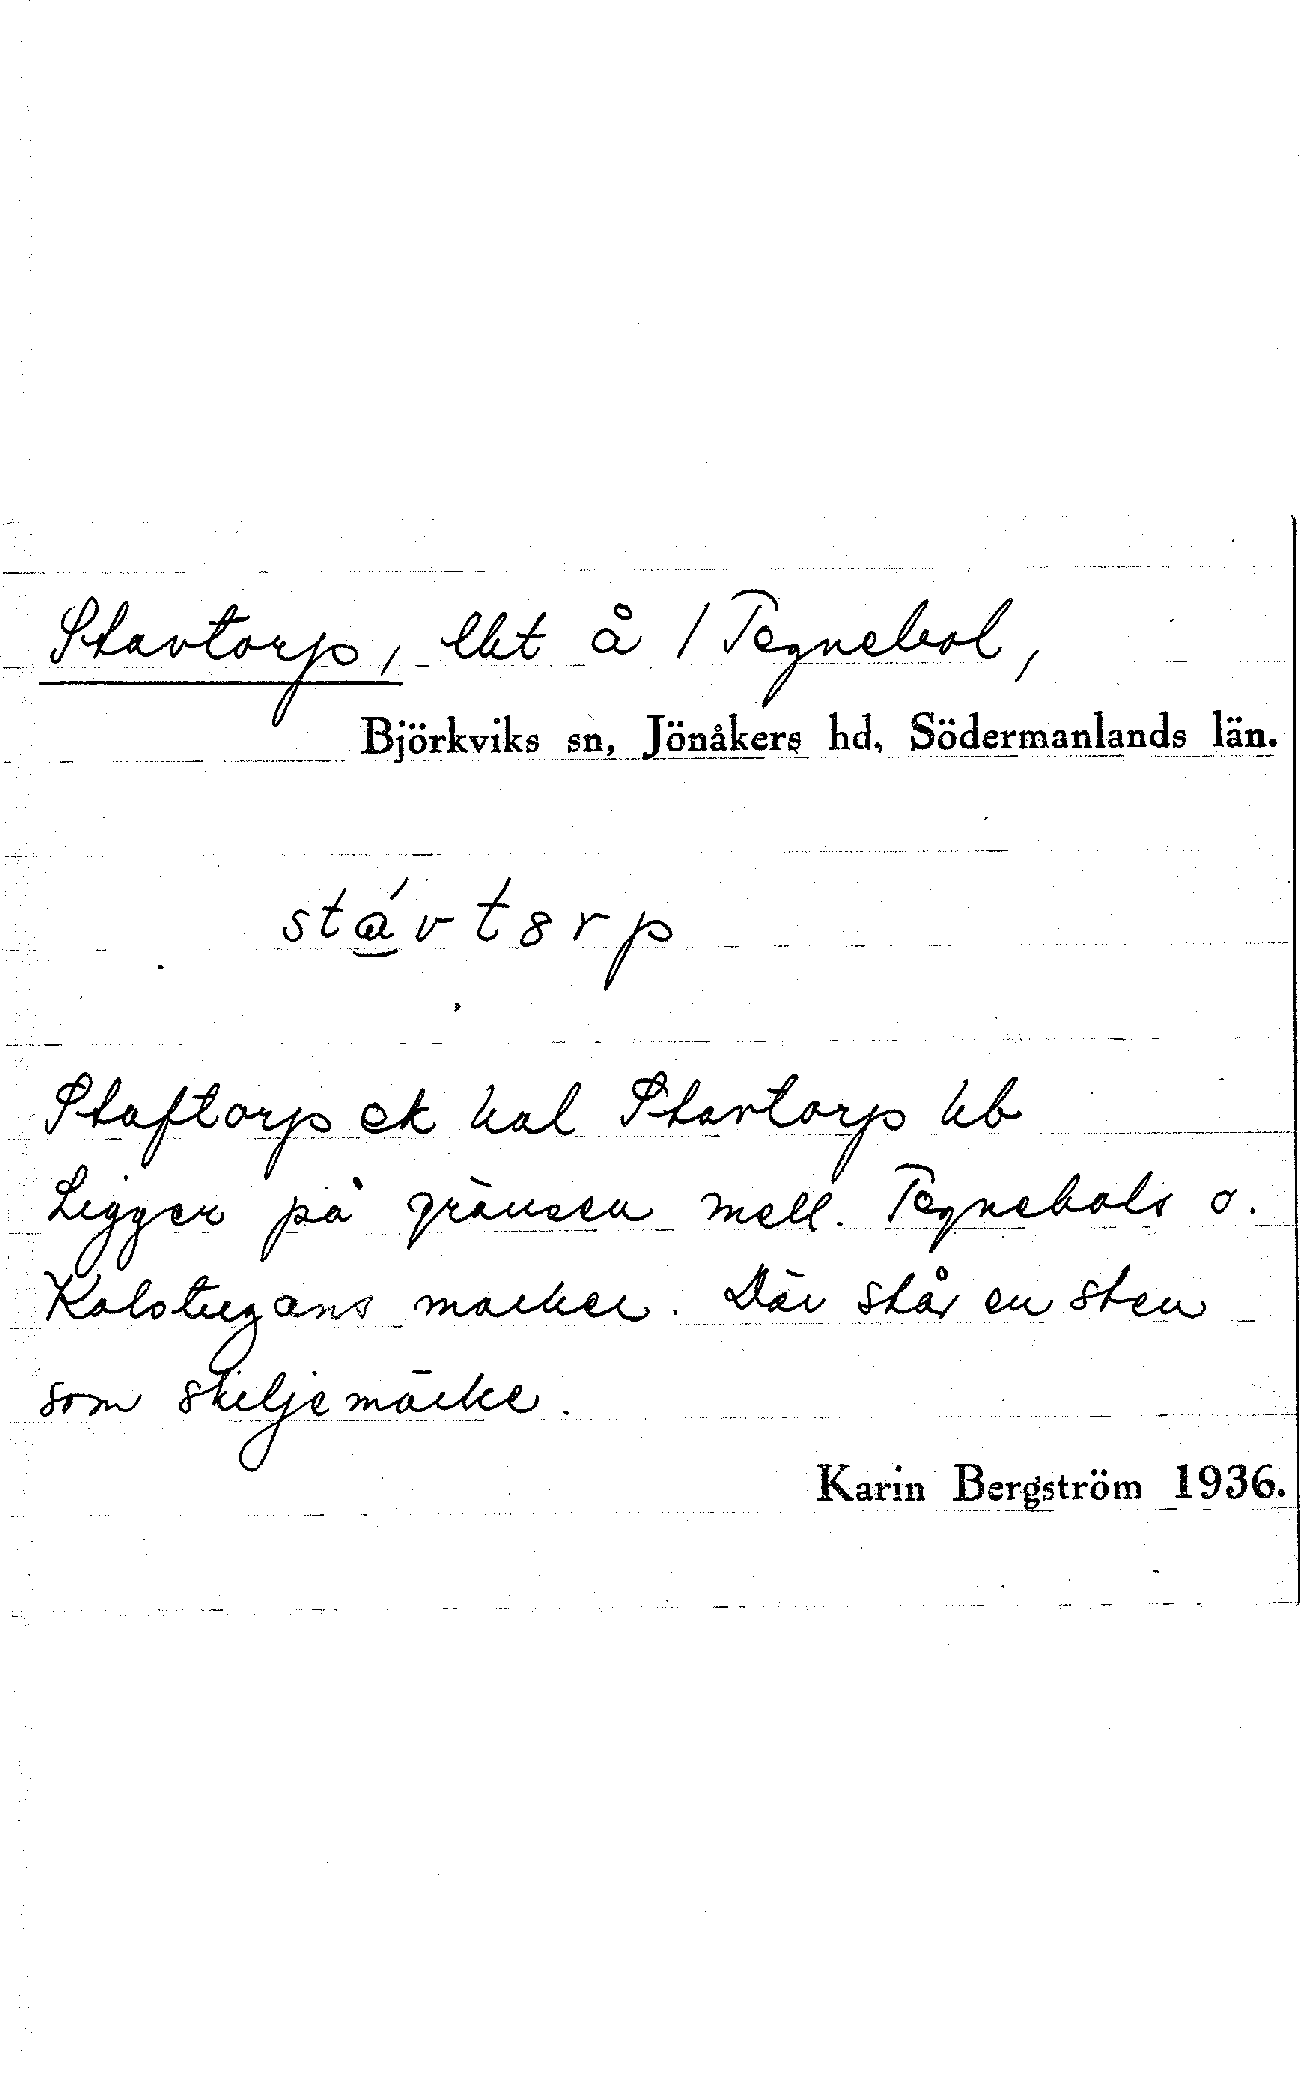 Stavtorp, lht å 1 Tegnebol,
Björkviks sn, Jönåkers hd, Södermanlands län.
stávtørp
Staftorp ek kal Stavtorp hb
Ligger på gränsen mell. Tegnebols o.
Kolstugans marker. Där står en sten
som skiljemärke.
Karin Bergström 1936.